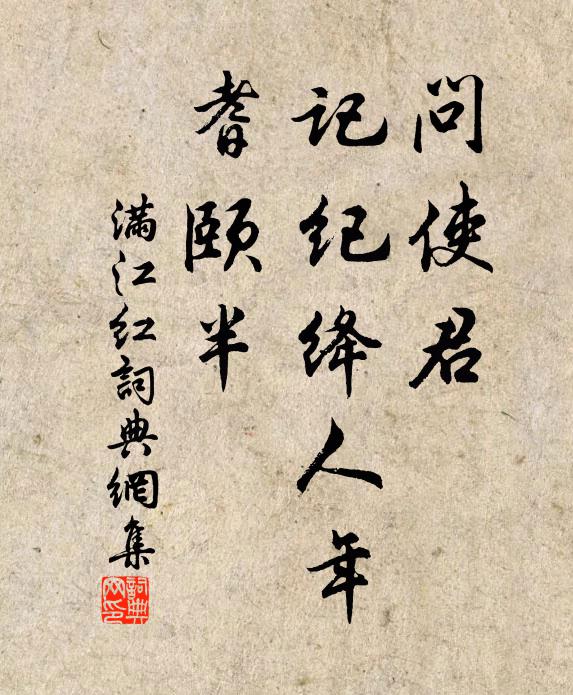 问使君
记纪绛人年
耆颐半
满江红詞典網集
詞典
网印